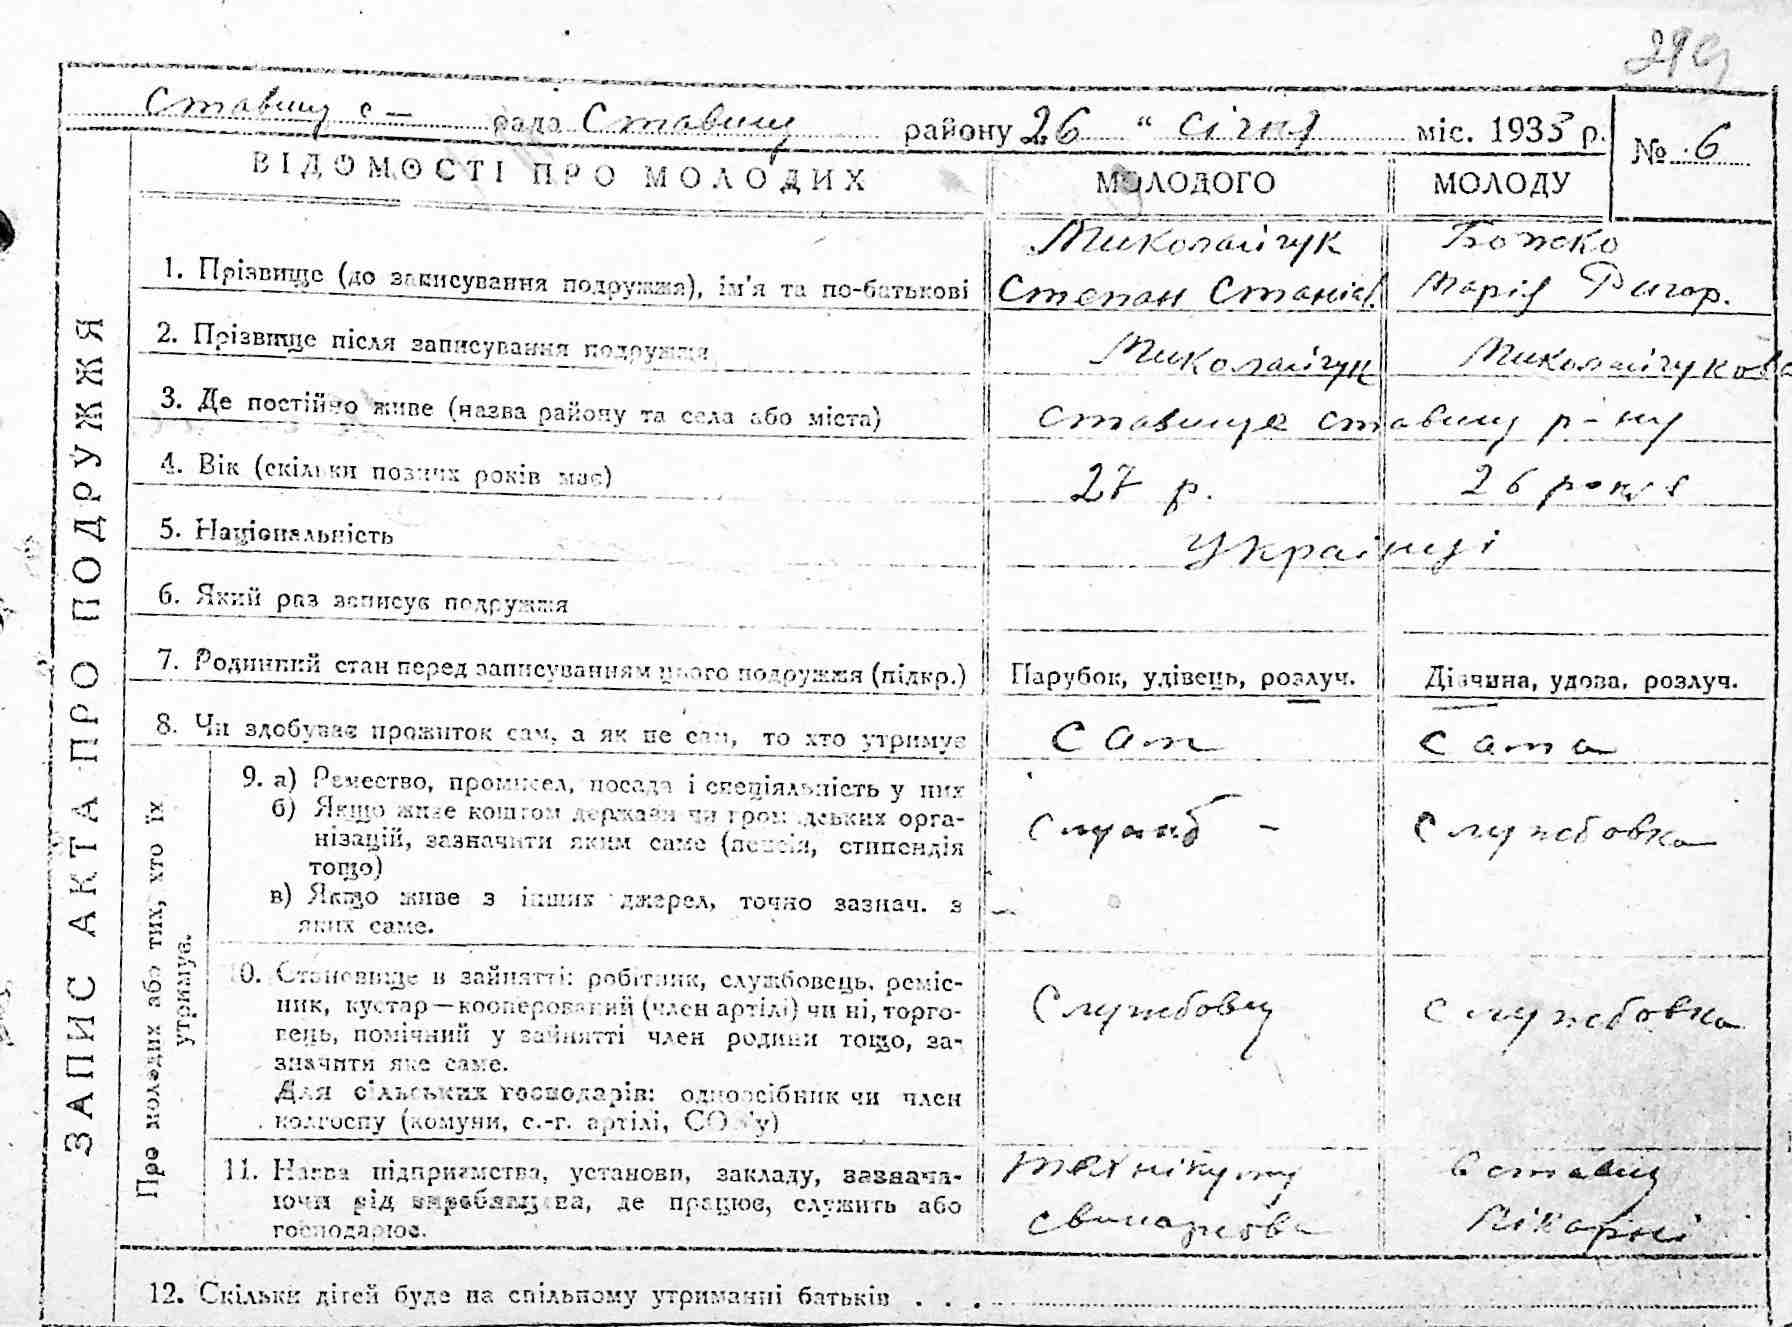 Ставищ с – рада Ставищ району 26 " січня міс. 1933 р.
№ 6
ВІДОМОСТІ ПРО МОЛОДИХ МОЛОДОГО МОЛОДУ
ЗАПИС АКТА ПРО ПОДРУЖЖЯ
Миколайчук Божко
1. Прізвище (до записування подружжя), ім'я та по-батькові Степан Станісл. Марія Ригор.
2. Прізвище після записування подружжя Миколайчук Миколайчукова
3. Де постійно живе (назва району та села або міста) Ставище Ставищ р-ну
4. Вік (скільки повних років має) 27 р. 26 років
5. Національність Українці
6. Який раз записує подружжя
7. Родинний стан перед записуванням цього подружжя (підкр.) Парубок, удівець, розлуч. Дівчина, удова, розлуч.
8. Чи здобуває прожиток сам, а як не сам, то хто утримує сам сама
Про молодих або тих, хто їх
утримує.
9. а) Ремество, промисел, посада і спеціяльність у них
б) Якщо живе коштом держави чи громадських орга-
нізацій, зазначити яким саме (пенсія, стипендія
тощо)
служб – службовка
в) Якщо живе з інших джерел, точно зазнач. з
яких саме.
10. Становище в зайнятті: робітник, службовець, реміс-
ник, кустар—кооперований (член артілі) чи ні, торго-
вець, помічний у зайнятті член родини тощо, за-
значити яке саме.
Службовц службовка
Для сільських господарів: одноосібник чи член
колгоспу (комуни, с.-г. артілі, СОЗ'у)
11. Назва підприємства, установи, закладу, зазнача-
ючи рід виробництва, де працює, служить або
господарює.
технікуму в Ставищ
лікарні
12. Скільки дітей буде на спільному утриманні батьків . . .